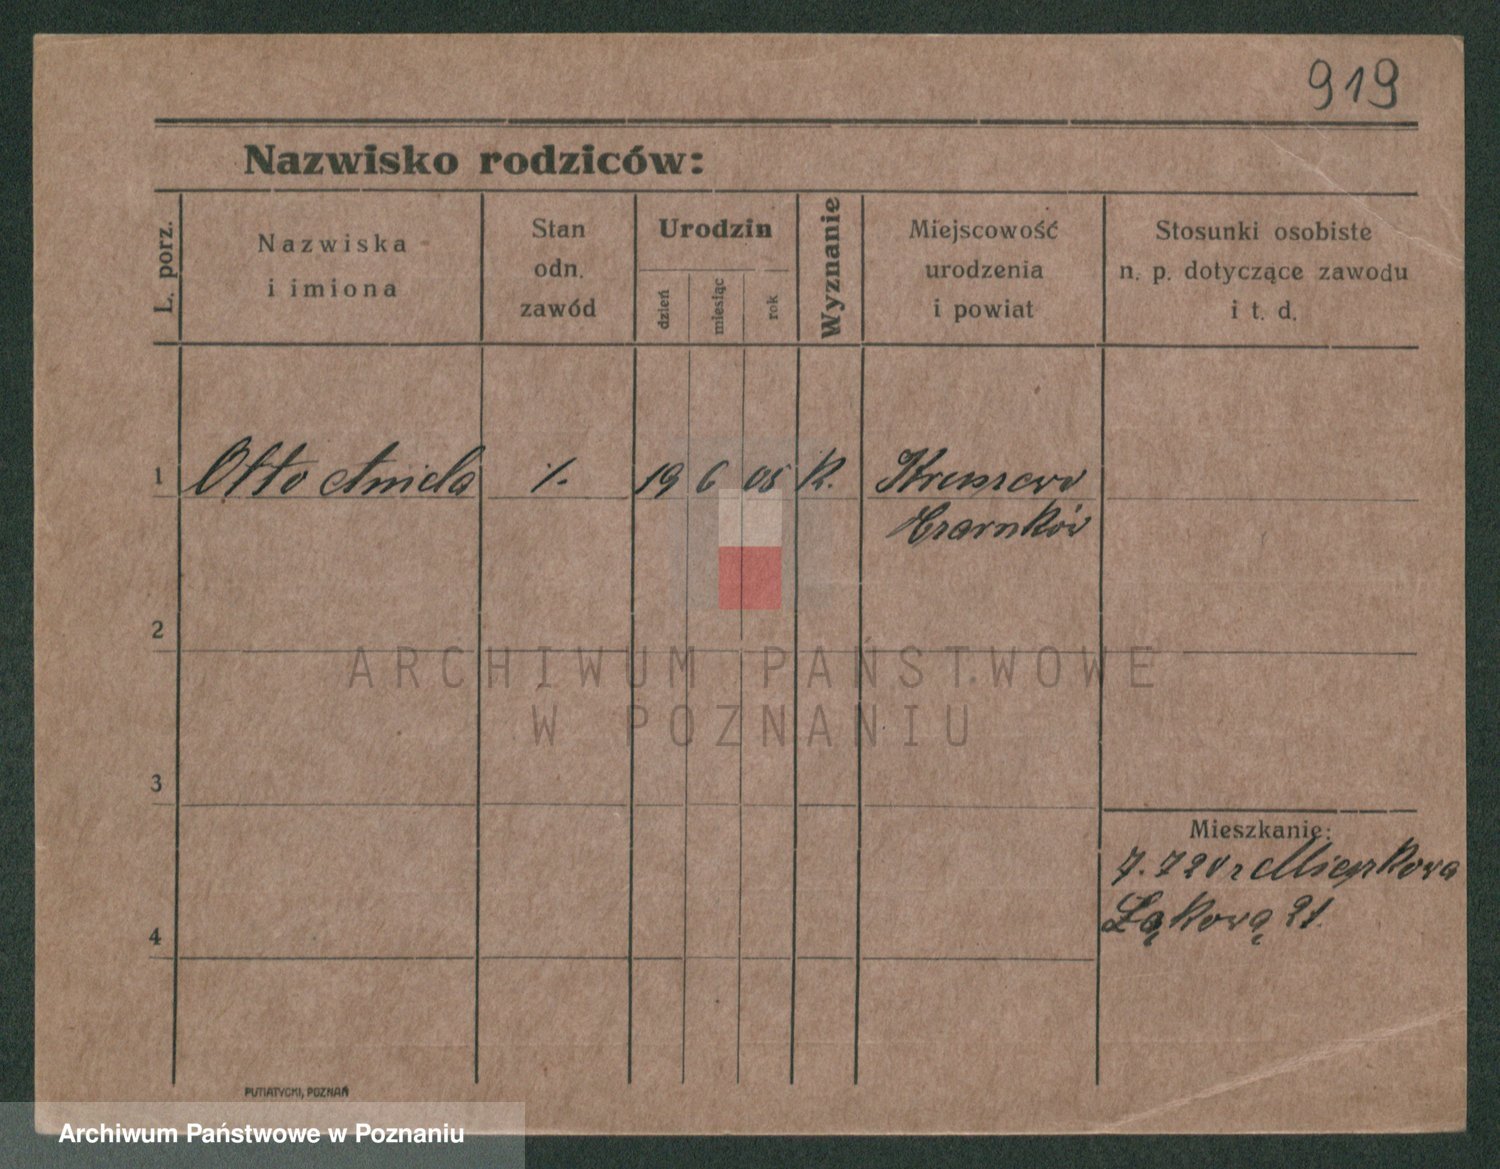 919
Nazwisko rodziców:
L. porz.
Nazwiska
i imiona
Stan
odn.
zawód
Urodzin
dzień
miesiąc
rok
Wyznanie
Miejscowość
urodzenia
i powiat
Stosunki osobiste
n. p. dotyczące zawodu
i t. d.
1 Otto Aniela 19 6 05 R. Kruszewo
Czarnków
2
3
4
Mieszkanie:
Łąkową 21.
PUTIATYCKI, POZNAŃ
ARCHIWUM PAŃSTWOWE
W POZNANIU
Archiwum Państwowe w Poznaniu